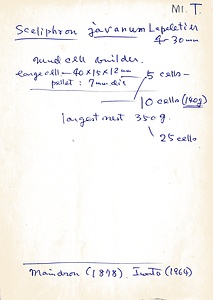 MI. T.
Sceliphron javanum Lepeletier
30mm
mud cell builder.
large cell - 40x15x12mm
5 cells -
pellet : 7mm dia
10 cells (140g)
largest nest 350g.
25 cells
Maindron (1878) Iwata (1964)